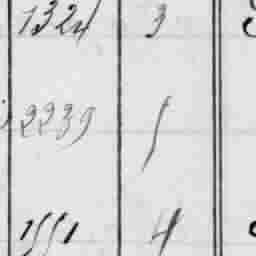 1324 3
2239 1
1551 4